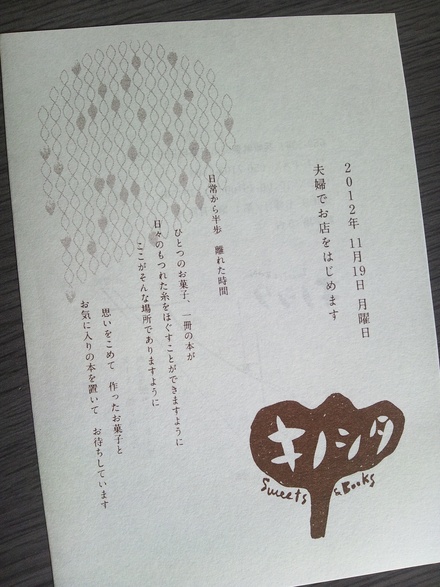 2012年 11月19日 月曜日
夫婦でお店をはじめます
日常から半歩 離れた時間
ひとつのお菓子、一冊の本が
日々のもつれた糸をほぐすことができますように
ここがそんな場所でありますように
思いをこめて 作ったお菓子と
お気に入りの本を置いて お待ちしています
キノシタ
Sweets & Books